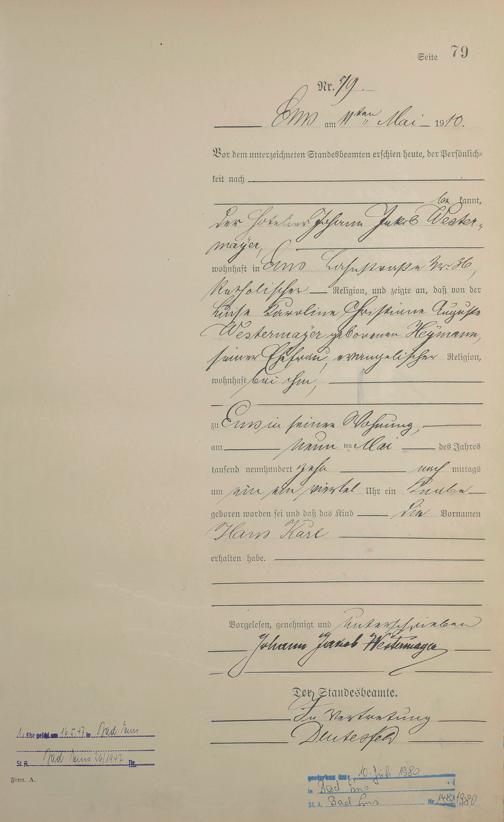 Seite 79
Nr. 79
Ems am 11ten Mai 1910.
Vor dem unterzeichneten Standesbeamten erschien heute, der Persönlich-
keit nach
be kannt,
der Hotelier Johann Jakob Wester-
mayer,
wohnhaft in Ems Lahnstraße Nr. 36,
Katholischer Religion, und zeigte an, daß von der
Luise Karoline Christiane Auguste
Westermayer geborenen Heymann,
seiner Ehefrau, evangelischer Religion,
wohnhaft bei ihm,
zu Ems in seiner Wohnung,
am neun ten Mai des Jahres
tausend neunhundert zehn nach mittags
um ein ein viertel Uhr ein Knabe
geboren worden sei und daß das Kind die Vornamen
Hans Karl
erhalten habe.
Vorgelesen, genehmigt und unterschrieben
Johann Jakob Westermayer
Der Standesbeamte.
In Vertretung
1. Ehe geschl. am in Bad Ems
St. A. Bad Ems Nr.
Form. A.
gestorben am 10. Juli 1980
in Bad Ems
St. A. Bad Ems Nr. 1980